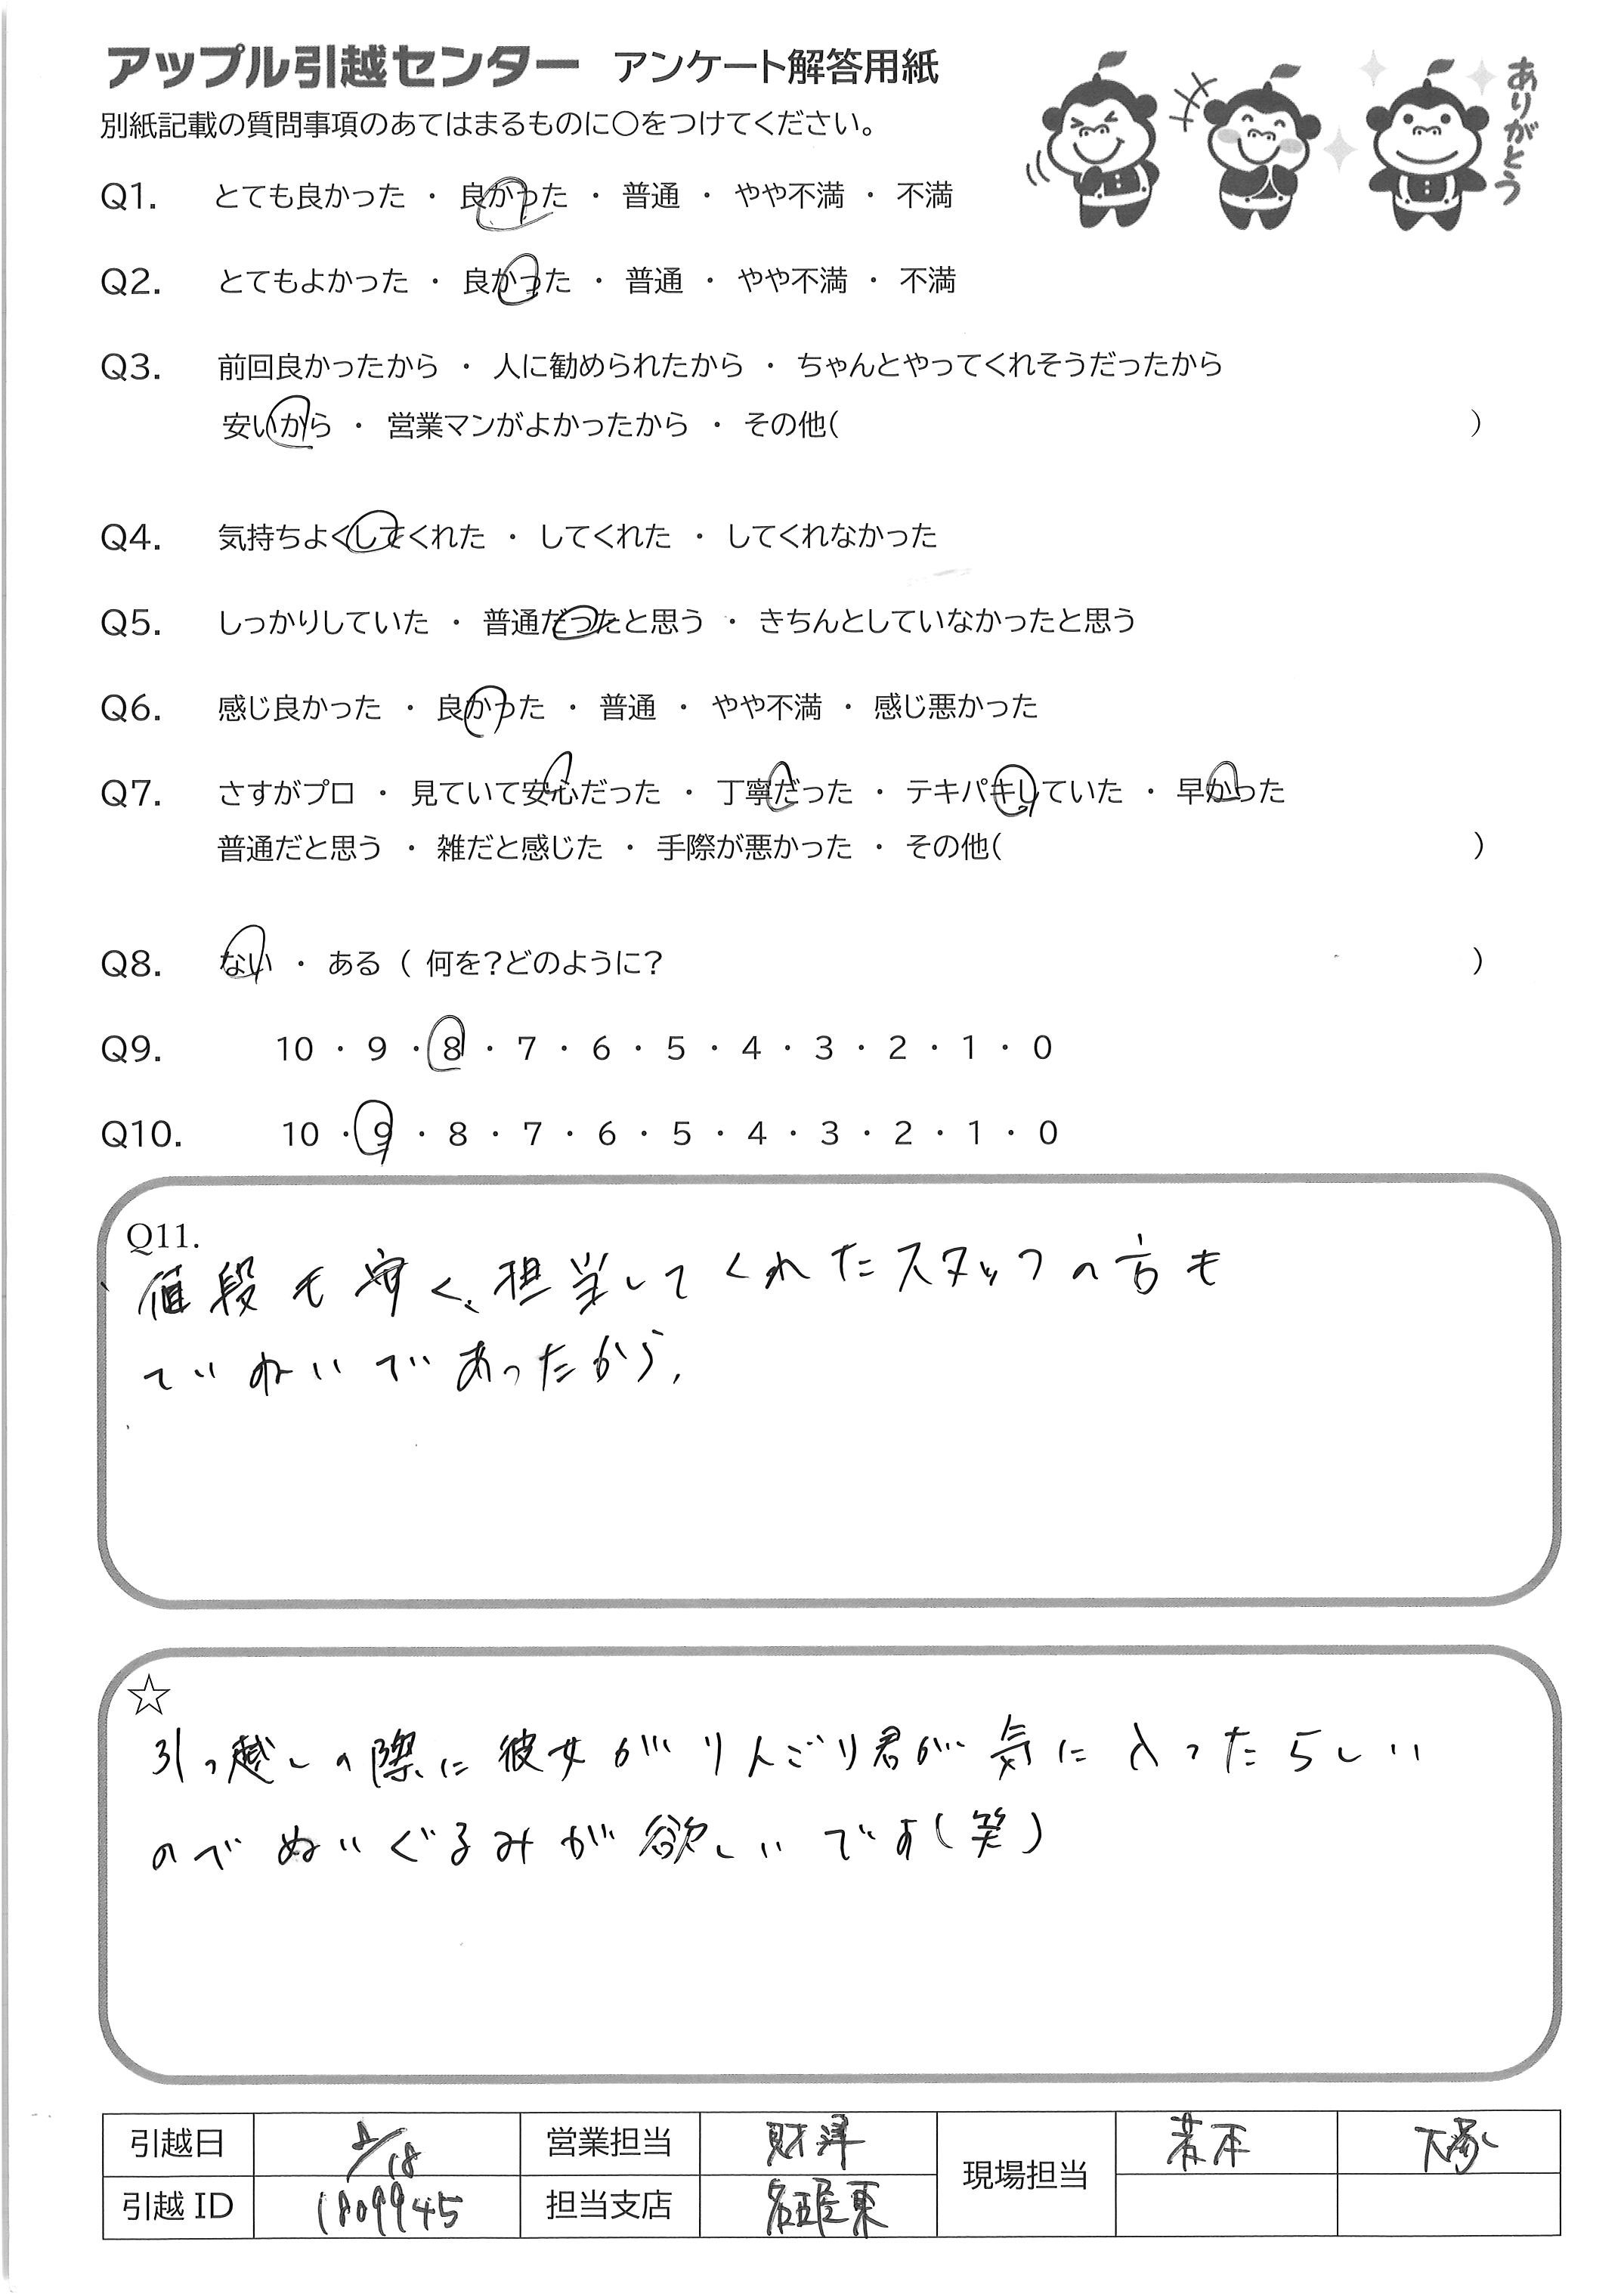 アップル引越センター アンケート解答用紙
ありがとう
別紙記載の質問事項のあてはまるものに○をつけてください。
Q1. とても良かった ・ 良かった ・ 普通 ・ やや不満 ・ 不満
Q2. とてもよかった ・ 良かった ・ 普通 ・ やや不満 ・ 不満
Q3. 前回良かったから ・ 人に勧められたから ・ ちゃんとやってくれそうだったから
安いから ・ 営業マンがよかったから ・ その他( )
Q4. 気持ちよくしてくれた ・ してくれた ・ してくれなかった
Q5. しっかりしていた ・ 普通だったと思う ・ きちんとしていなかったと思う
Q6. 感じ良かった ・ 良かった ・ 普通 ・ やや不満 ・ 感じ悪かった
Q7. さすがプロ ・ 見ていて安心だった ・ 丁寧だった ・ テキパキしていた ・ 早かった
普通だと思う ・ 雑だと感じた ・ 手際が悪かった ・ その他( )
Q8. ない ・ ある ( 何を?どのように? )
Q9. 10 ・ 9 ・ 8 ・ 7 ・ 6 ・ 5 ・ 4 ・ 3 ・ 2 ・ 1 ・ 0
Q10. 10 ・ 9 ・ 8 ・ 7 ・ 6 ・ 5 ・ 4 ・ 3 ・ 2 ・ 1 ・ 0
Q11.
値段も安く、担当してくれたスタッフの方も
ていねいであったから.
☆
引っ越しの際に彼女がりんごり君が気に入ったらしい
のでぬいぐるみが欲しいです(笑)
引越日 営業担当 財津 現場担当 大塚
引越 ID 1809945 担当支店 名古屋東